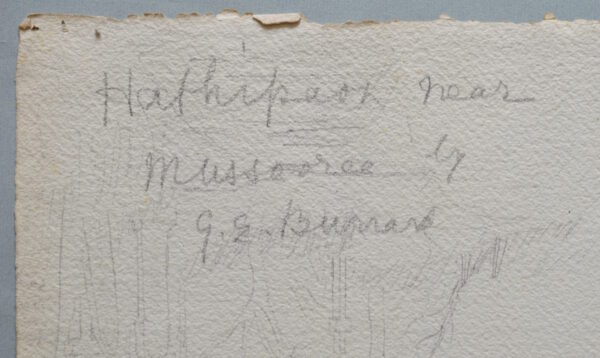 Hathipaon near
Mussooree by
G. E. Burrard